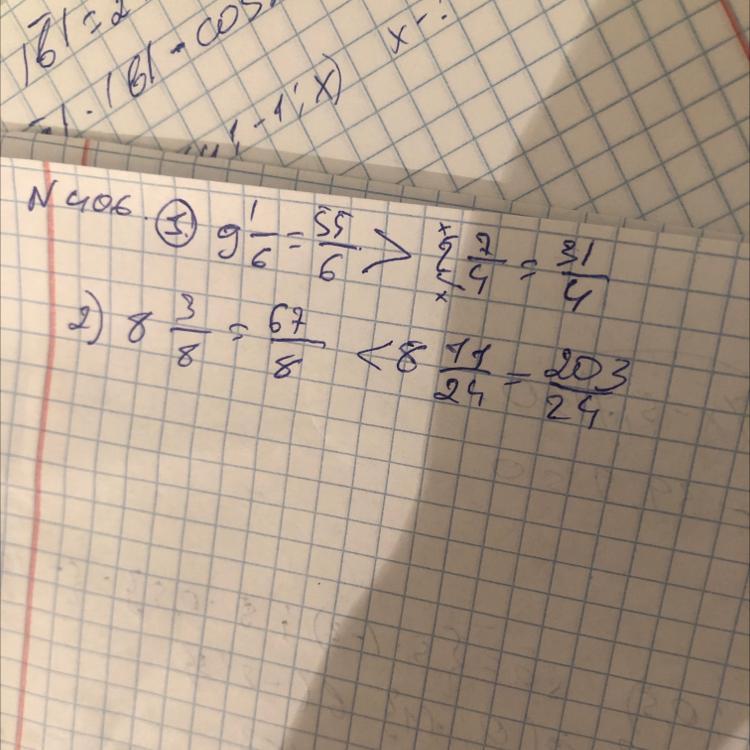 |b̄| = 2
| · |b̄| · cos
-1; x)
x - ?
N 406. 1. 9 1/6 = 55/6 > 7/4 = 31/4
2) 8 3/8 = 67/8 < 8 11/24 = 203/24